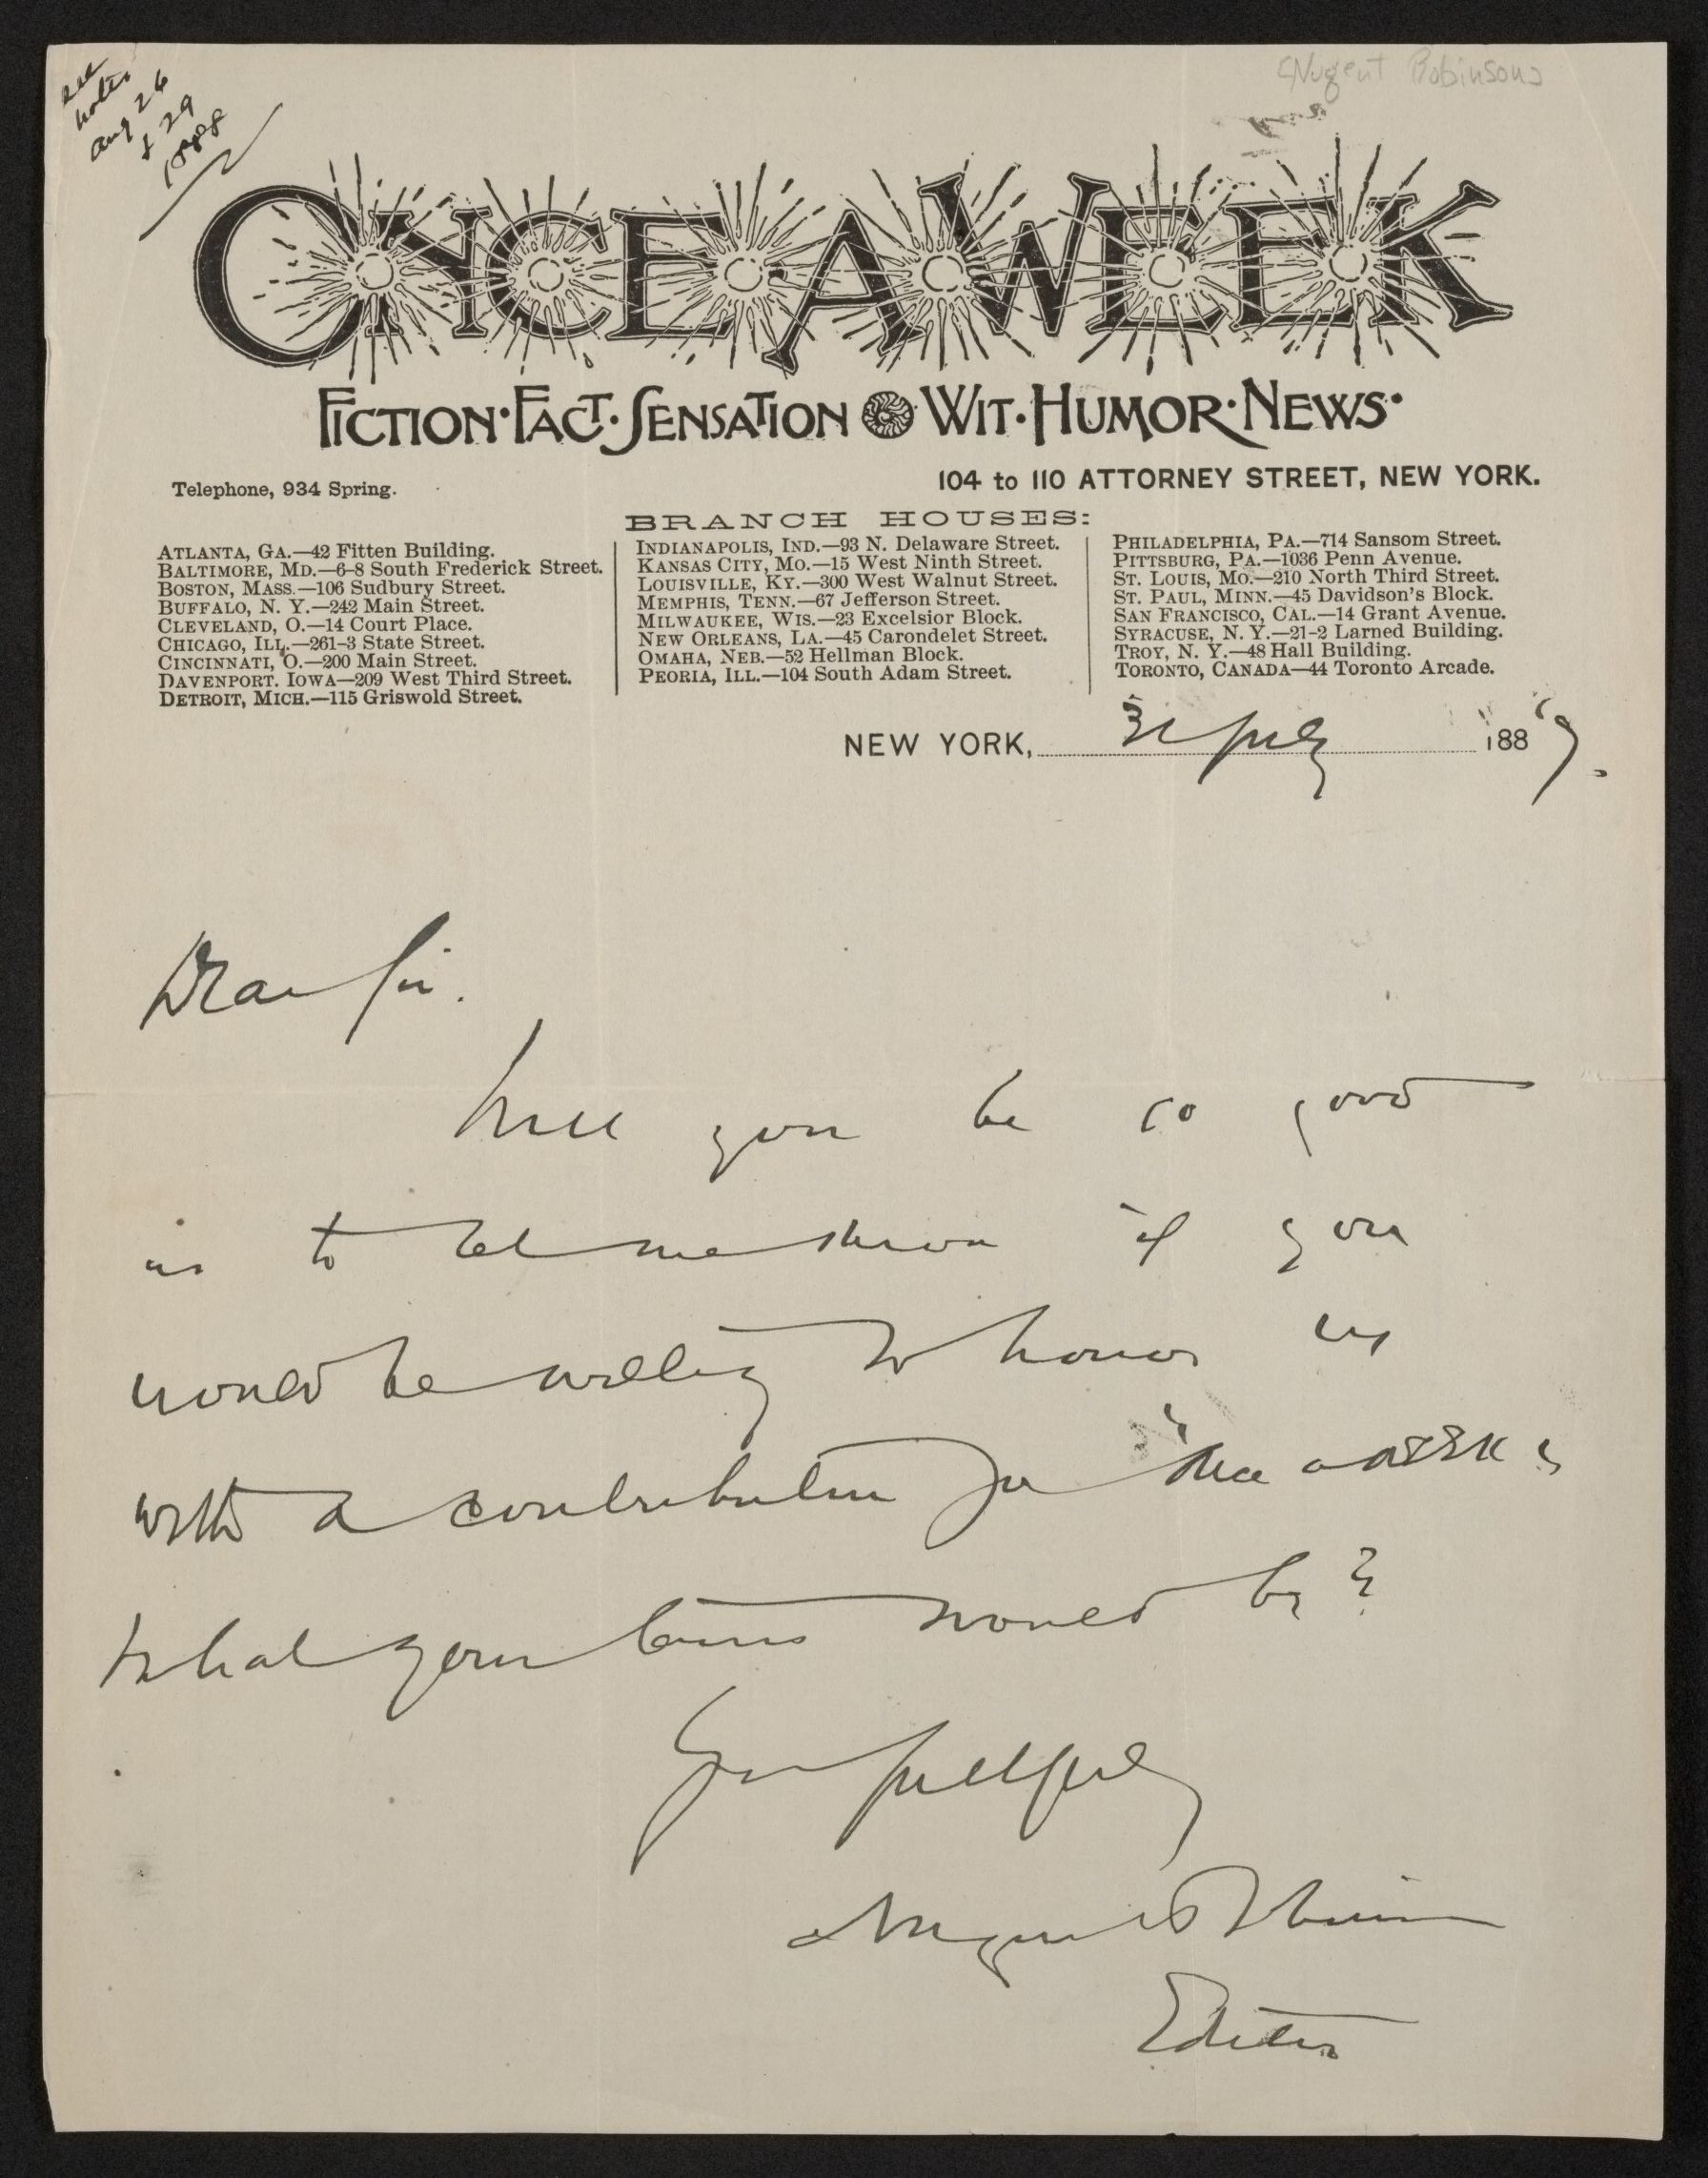 see
notes
Aug 26
& 29
(Nugent Robinson)
ONCE A WEEK
FICTION·FACT·SENSATION WIT·HUMOR·NEWS·
Telephone, 934 Spring.
104 to 110 ATTORNEY STREET, NEW YORK.
BRANCH HOUSES:
ATLANTA, GA.—42 Fitten Building.
BALTIMORE, MD.—6-8 South Frederick Street.
BOSTON, MASS.—106 Sudbury Street.
BUFFALO, N. Y.—242 Main Street.
CLEVELAND, O.—14 Court Place.
CHICAGO, ILL.—261-3 State Street.
CINCINNATI, O.—200 Main Street.
DAVENPORT. IOWA—209 West Third Street.
DETROIT, MICH.—115 Griswold Street.
INDIANAPOLIS, IND.—93 N. Delaware Street.
KANSAS CITY, MO.—15 West Ninth Street.
LOUISVILLE, KY.—300 West Walnut Street.
MEMPHIS, TENN.—67 Jefferson Street.
MILWAUKEE, WIS.—23 Excelsior Block.
NEW ORLEANS, LA.—45 Carondelet Street.
OMAHA, NEB.—52 Hellman Block.
PEORIA, ILL.—104 South Adam Street.
PHILADELPHIA, PA.—714 Sansom Street.
PITTSBURG, PA.—1036 Penn Avenue.
ST. LOUIS, MO.—210 North Third Street.
ST. PAUL, MINN.—45 Davidson's Block.
SAN FRANCISCO, CAL.—14 Grant Avenue.
SYRACUSE, N. Y.—21-2 Larned Building.
TROY, N. Y.—48 Hall Building.
TORONTO, CANADA—44 Toronto Arcade.
NEW YORK, 31 July 1889.
Dear Sir.
Will you be so good
as to let me know if you
would be willing to honor us
with a contribution for "Once a WEEK" &
what your terms would be?
Yours faithfully
Nugent Robinson
Editor